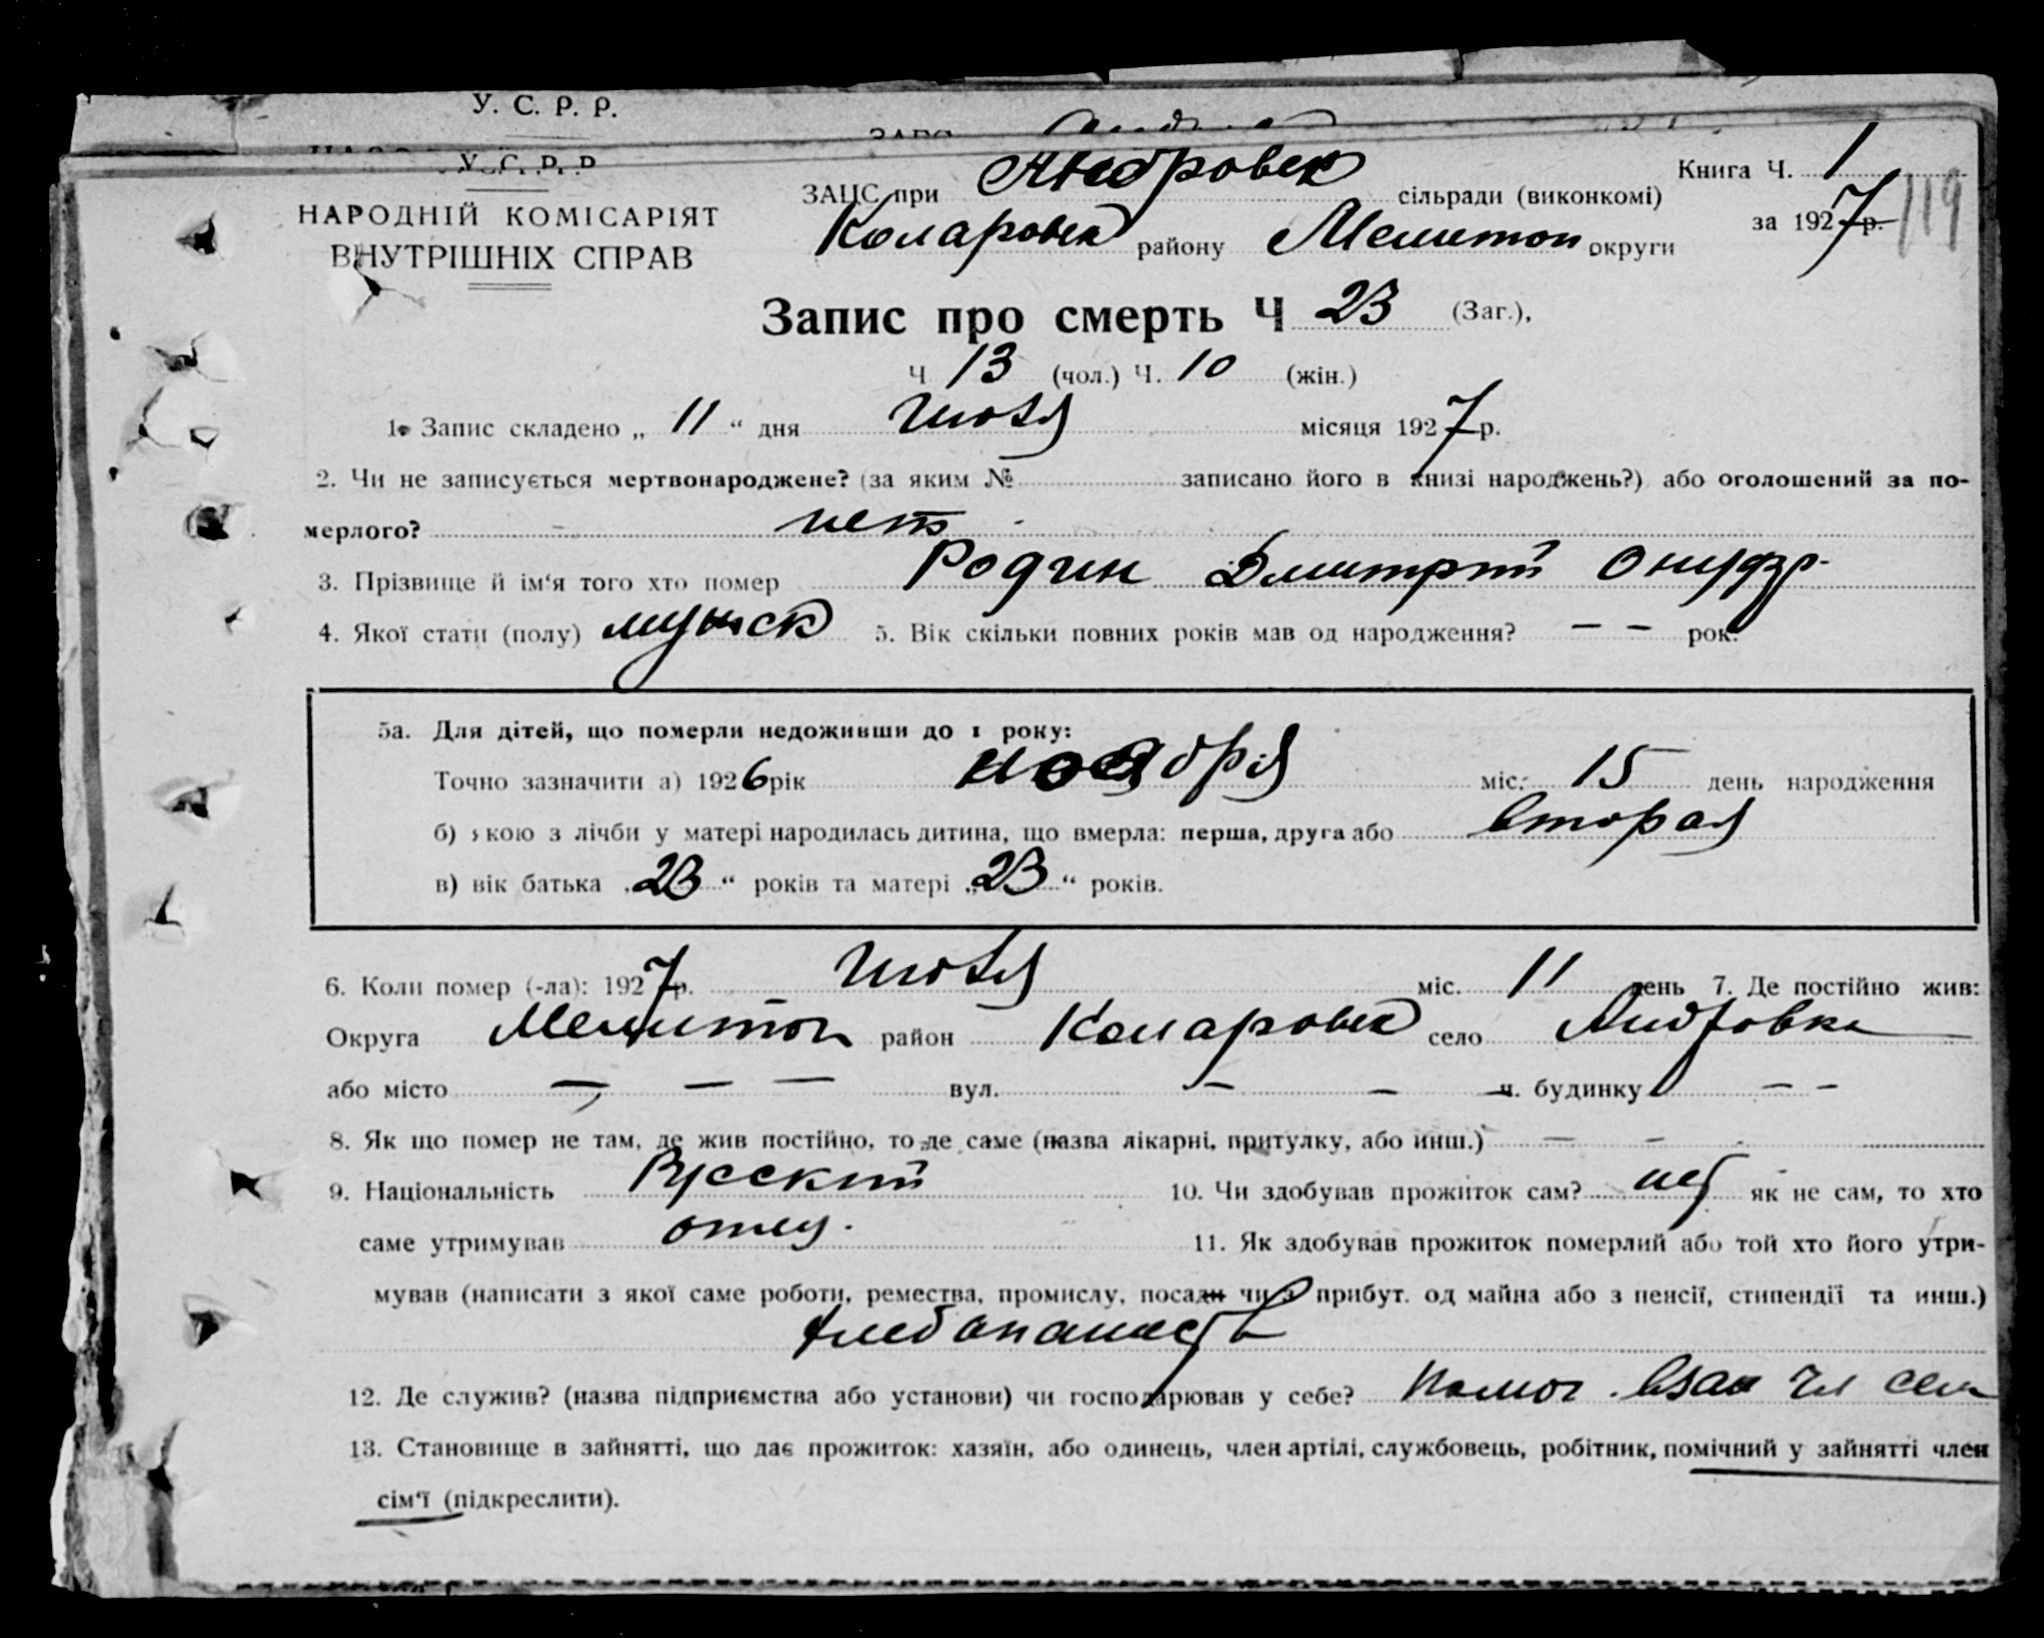 У. С. Р. Р.
У. С. Р. Р.
НАРОДНІЙ КОМІСАРІЯТ
ВНУТРІШНІХ СПРАВ
ЗАЦС при Андровск сільради (виконкомі)
Коларовск району Мелитоп округи
Книга Ч. 1
за 1927 р. 119
Запис про смерть Ч 23 (Заг.),
Ч 13 (чол.) Ч. 10 (жін.)
1. Запис складено „ 11 “ дня Июля місяця 1927 р.
2. Чи не записується мертвонароджене? (за яким № записано його в книзі народжень?) або оголошений за по-
мерлого? нет
3. Прізвище й ім‘я того хто помер Родин Дмитрий Онуфр.
4. Якої стати (полу) мужск 5. Вік скільки повних років мав од народження? — — рок.
5а. Для дітей, що померли недоживши до 1 року:
Точно зазначити а) 1926 рік ноября міс. 15 день народження
б) якою з лічби у матері народилась дитина, що вмерла: перша, друга або вторая
в) вік батька „ 23 “ років та матері „ 23 “ років.
6. Коли помер (-ла): 1927 р. Июля міс. 11 день 7. Де постійно жив:
Округа Мелитоп район Коларовск село Андровка
або місто — — — вул. — — ч. будинку — —
8. Як що помер не там, де жив постійно, то де саме (назва лікарні, притулку, або инш.) — —
9. Національність Русский 10. Чи здобував прожиток сам? нет як не сам, то хто
саме утримував отец. 11. Як здобував прожиток померлий або той хто його утри-
мував (написати з якої саме роботи, ремества, промислу, посади чи з прибут. од майна або з пенсії, стипендії та инш.)
хлебопашеств
12. Де служив? (назва підприємства або установи) чи господарював у себе? помог. взан чл сем
13. Становище в зайнятті, що дає прожиток: хазяїн, або одинець, член артілі, службовець, робітник, помічний у зайнятті член
сім‘ї (підкреслити).